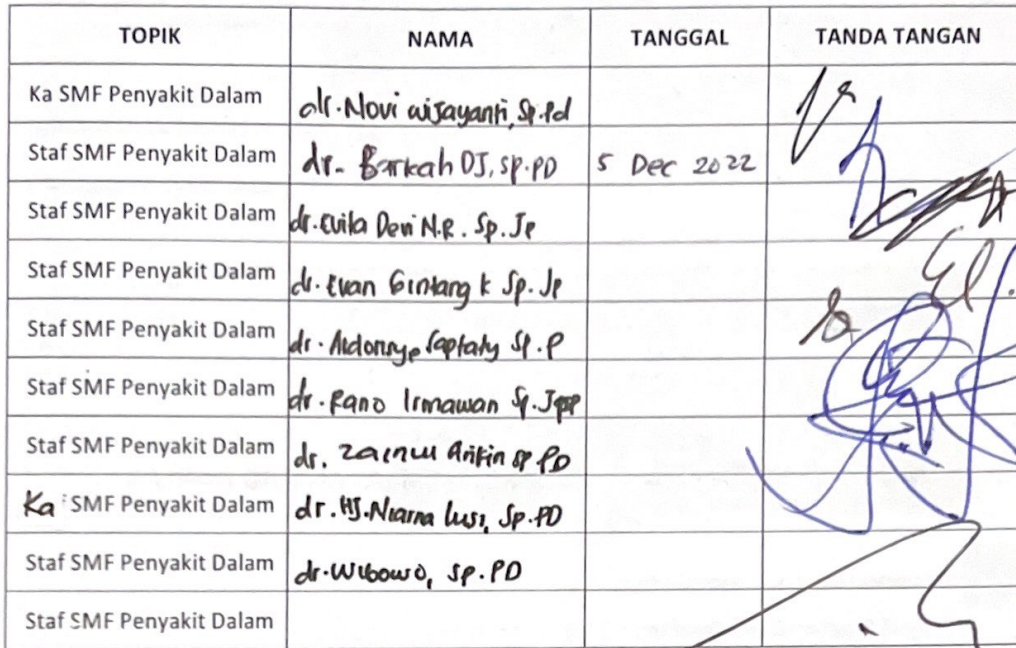 TOPIK NAMA TANGGAL TANDA TANGAN
Ka SMF Penyakit Dalam dr. Novi wijayanti, Sp.Pd
Staf SMF Penyakit Dalam dr. Barkah DJ, Sp.PD 5 Dec 2022
Staf SMF Penyakit Dalam dr. Evita Devi N.R. Sp.Jp
Staf SMF Penyakit Dalam dr. Evan Bintang K Sp.Jp
Staf SMF Penyakit Dalam dr. Sp.P
Staf SMF Penyakit Dalam dr. Rano Irmawan
Staf SMF Penyakit Dalam dr. Zainul Arifin Sp PD
Ka SMF Penyakit Dalam dr. HJ. Lusi, Sp.PD
Staf SMF Penyakit Dalam dr. Wibowo, Sp.PD
Staf SMF Penyakit Dalam